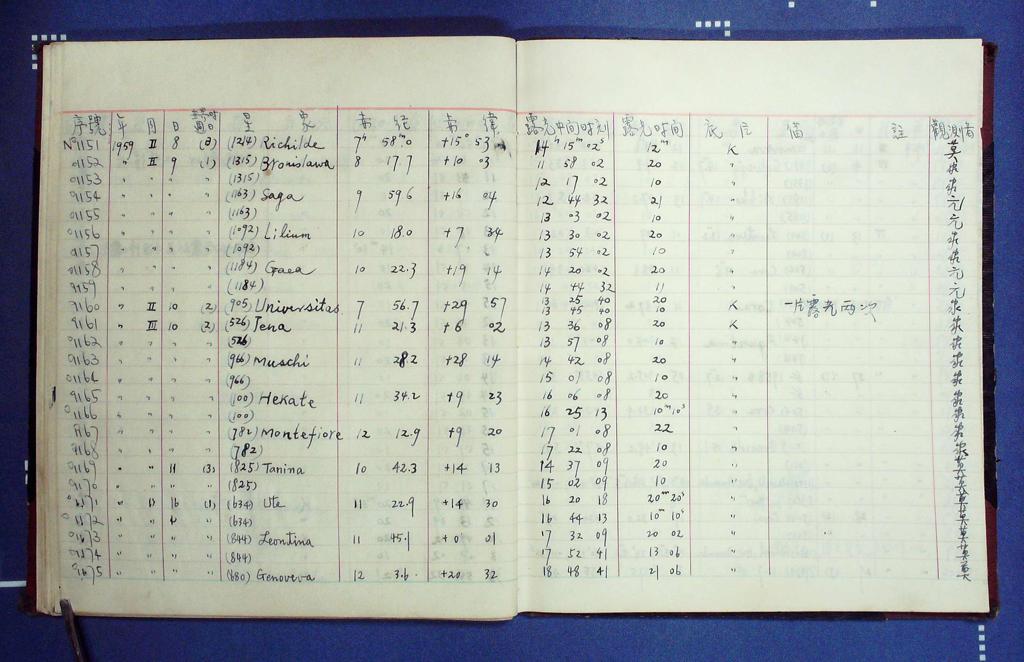 序號 年 月 日 星 象 赤 经 赤 緯 露光中间时刻 露光时间 底 片 備 註 觀測者
Nº1151 1959 II 8 (8) (1214) Richilde 7ʰ 58ᵐ.0 +15° 53 14ʰ 15ᵐ 02ˢ 12ᵐ K 莫
01152 " II 9 (1) (1315) Bronislawa 8 17.7 +10 03 11 58 02 20 "
01153 " " " " (1315) 12 17 02 10 "
01154 " " " " (1163) Saga 9 59.6 +16 04 12 44 32 21 " 元
01155 " " " " (1163) 13 03 02 10 " 元
01156 " " " " (1092) Lilium 10 18.0 +7 34 13 30 02 20 "
01157 " " " " (1092) 13 54 02 10 "
01158 " " " " (1184) Gaea 10 22.3 +19 14 14 20 02 20 " 元
9159 " " " " (1184) 14 44 32 11 " 元
9160 " II 10 (2) (905) Universitas 7 56.7 +29 57 13 25 40 20 K 一片露光两次
13 45 40 10
9161 " III 10 (2) (526) Jena 11 21.3 +6 02 13 36 08 20 K
01162 " " " " (526) 13 57 08 10 "
01163 " " " " (966) Muschi 11 28.2 +28 14 14 42 08 20 "
01164 " " " " (966) 15 07 08 10 "
9165 " " " " (100) Hekate 11 34.2 +9 23 16 06 08 20 "
01166 " " " " (100) 16 25 13 10ᵐ10ˢ "
9167 " " " " (782) Montefiore 12 12.9 +9 20 17 01 08 22 "
9168 " " " " (782) 17 22 08 10 "
9169 " " 11 (3) (825) Tanina 10 42.3 +14 13 14 37 09 20 " 莫
9170 " " " " (825) 15 02 09 10 " 莫
1171 " " 16 (1) (634) Ute 11 22.9 +14 30 16 20 18 20ᵐ20ˢ " 莫
01172 " " " (634) 16 44 13 10ᵐ10ˢ " 莫
01173 " " " " (844) Leontina 11 45.1 +0 01 17 32 09 20 02 " 莫
1174 " " " " (844) 17 52 41 13 06 " 莫
1175 " " " " (680) Genoveva 12 3.6 +20 32 18 48 41 21 06 " 莫